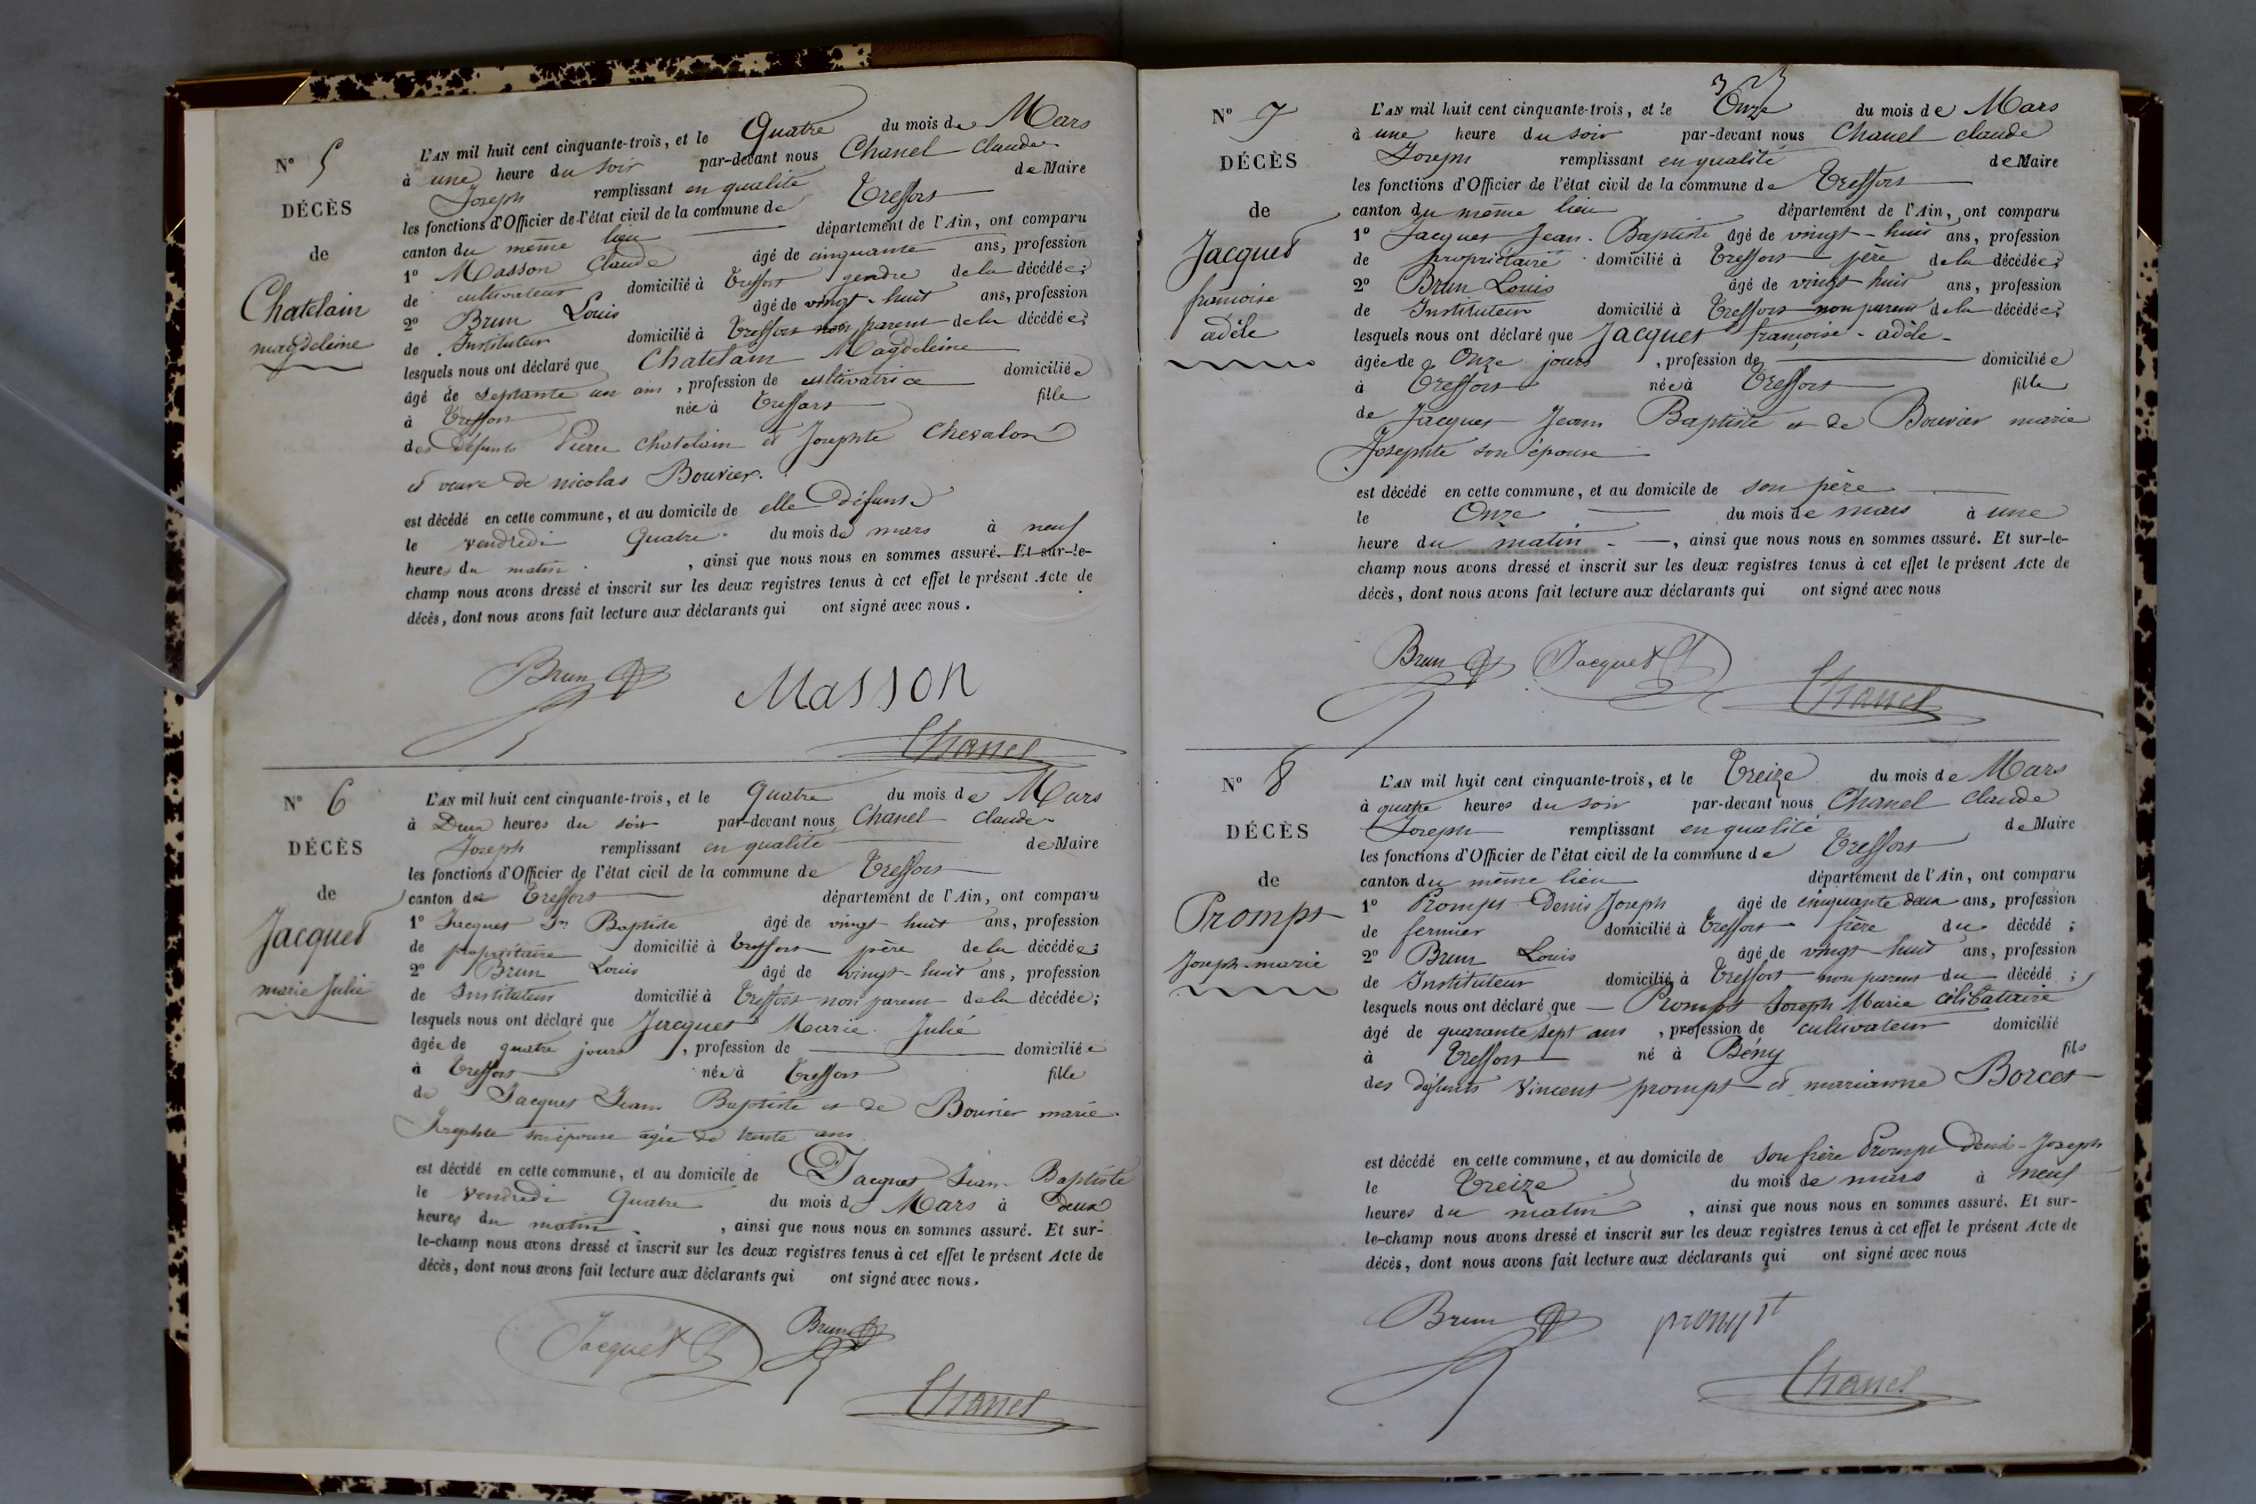 N° 5
DÉCÈS
de
Chatelain
magdeleine
L'AN mil huit cent cinquante-trois, et le Quatre du mois de Mars
à une heure du soir par-devant nous Chanel Claude
Joseph remplissant en qualité de Maire
les fonctions d'Officier de l'état civil de la commune de Treffort
canton du même lieu département de l'Ain, ont comparu
1° Masson Claude âgé de cinquante ans, profession
de cultivateur domicilié à Treffort gendre de la décédée;
2° Brun Louis âgé de vingt-huit ans, profession
de Instituteur domicilié à Treffort non parent de la décédée;
lesquels nous ont déclaré que Chatelain Magdeleine
âgé de septante un ans, profession de cultivatrice domiciliée
à Treffort née à Treffort fille
des défunts Pierre Chatelain et Josephte Chevalon
et veuve de nicolas Bouvier.
est décédé en cette commune, et au domicile de elle Défunte
le vendredi Quatre du mois de mars à neuf
heures du matin, ainsi que nous nous en sommes assuré. Et sur-le-
champ nous avons dressé et inscrit sur les deux registres tenus à cet effet le présent Acte de
décès, dont nous avons fait lecture aux déclarants qui ont signé avec nous.
Brun
Masson
Chanel
N° 6
DÉCÈS
de
Jacquet
marie Julie
L'AN mil huit cent cinquante-trois, et le Quatre du mois de Mars
à Deux heures du soir par-devant nous Chanel Claude
Joseph remplissant en qualité de Maire
les fonctions d'Officier de l'état civil de la commune de Treffort
canton de Treffort département de l'Ain, ont comparu
1° Jacquet Jn Baptiste âgé de vingt huit ans, profession
de propriétaire domicilié à Treffort père de la décédée;
2° Brun Louis âgé de vingt-huit ans, profession
de Instituteur domicilié à Treffort non parent de la décédée;
lesquels nous ont déclaré que Jacquet Marie Julie
âgée de quatre jours, profession de domiciliée
à Treffort née à Treffort fille
de Jacquet Jean Baptiste et de Bouvier marie
Josephte son épouse agée de trente ans
est décédé en cette commune, et au domicile de Jacquet Jean Baptiste
le vendredi Quatre du mois de Mars à deux
heures du matin, ainsi que nous nous en sommes assuré. Et sur-
le-champ nous avons dressé et inscrit sur les deux registres tenus à cet effet le présent Acte de
décès, dont nous avons fait lecture aux déclarants qui ont signé avec nous.
Jacquet
Brun
Chanel
N° 7
DÉCÈS
de
Jacquet
francoise
adèle
L'AN mil huit cent cinquante-trois, et le Onze du mois de Mars
à une heure du soir par-devant nous Chanel claude
Joseph remplissant en qualité de Maire
les fonctions d'Officier de l'état civil de la commune de Treffort
canton du même lieu département de l'Ain, ont comparu
1° Jacquet Jean-Baptiste âgé de vingt-huit ans, profession
de propriétaire domicilié à Treffort père de la décédée;
2° Brun Louis âgé de vingt huit ans, profession
de Instituteur domicilié à Treffort non parent de la décédée;
lesquels nous ont déclaré que Jacquet françoise-adèle
âgée de Onze jours, profession de domiciliée
à Treffort née à Treffort fille
de Jacquet Jean Baptiste et de Bouvier marie
Josephte son épouse
est décédé en cette commune, et au domicile de son père
le Onze du mois de mars à une
heure du matin, ainsi que nous nous en sommes assuré. Et sur-le-
champ nous avons dressé et inscrit sur les deux registres tenus à cet effet le présent Acte de
décès, dont nous avons fait lecture aux déclarants qui ont signé avec nous
Brun
Jacquet
Chanel
N° 8
DÉCÈS
de
Prompt
Joseph-marie
L'AN mil huit cent cinquante-trois, et le Treize du mois de Mars
à quatre heures du soir par-devant nous Chanel claude
Joseph remplissant en qualité de Maire
les fonctions d'Officier de l'état civil de la commune de Treffort
canton du même lieu département de l'Ain, ont comparu
1° Prompt Denis Joseph âgé de cinquante deux ans, profession
de fermier domicilié à Treffort frère du décédé;
2° Brun Louis âgé de vingt-huit ans, profession
de Instituteur domicilié à Treffort non parent du décédé;
lesquels nous ont déclaré que Prompt Joseph Marie célibataire
âgé de quarante sept ans, profession de cultivateur domicilié
à Treffort né à Bény fils
des défunts Vincent prompt et marianne Borcet
est décédé en cette commune, et au domicile de son frère Prompt Denis-Joseph
le Treize du mois de mars à neuf
heures du matin, ainsi que nous nous en sommes assuré. Et sur-
le-champ nous avons dressé et inscrit sur les deux registres tenus à cet effet le présent Acte de
décès, dont nous avons fait lecture aux déclarants qui ont signé avec nous
Brun
prompt
Chanel